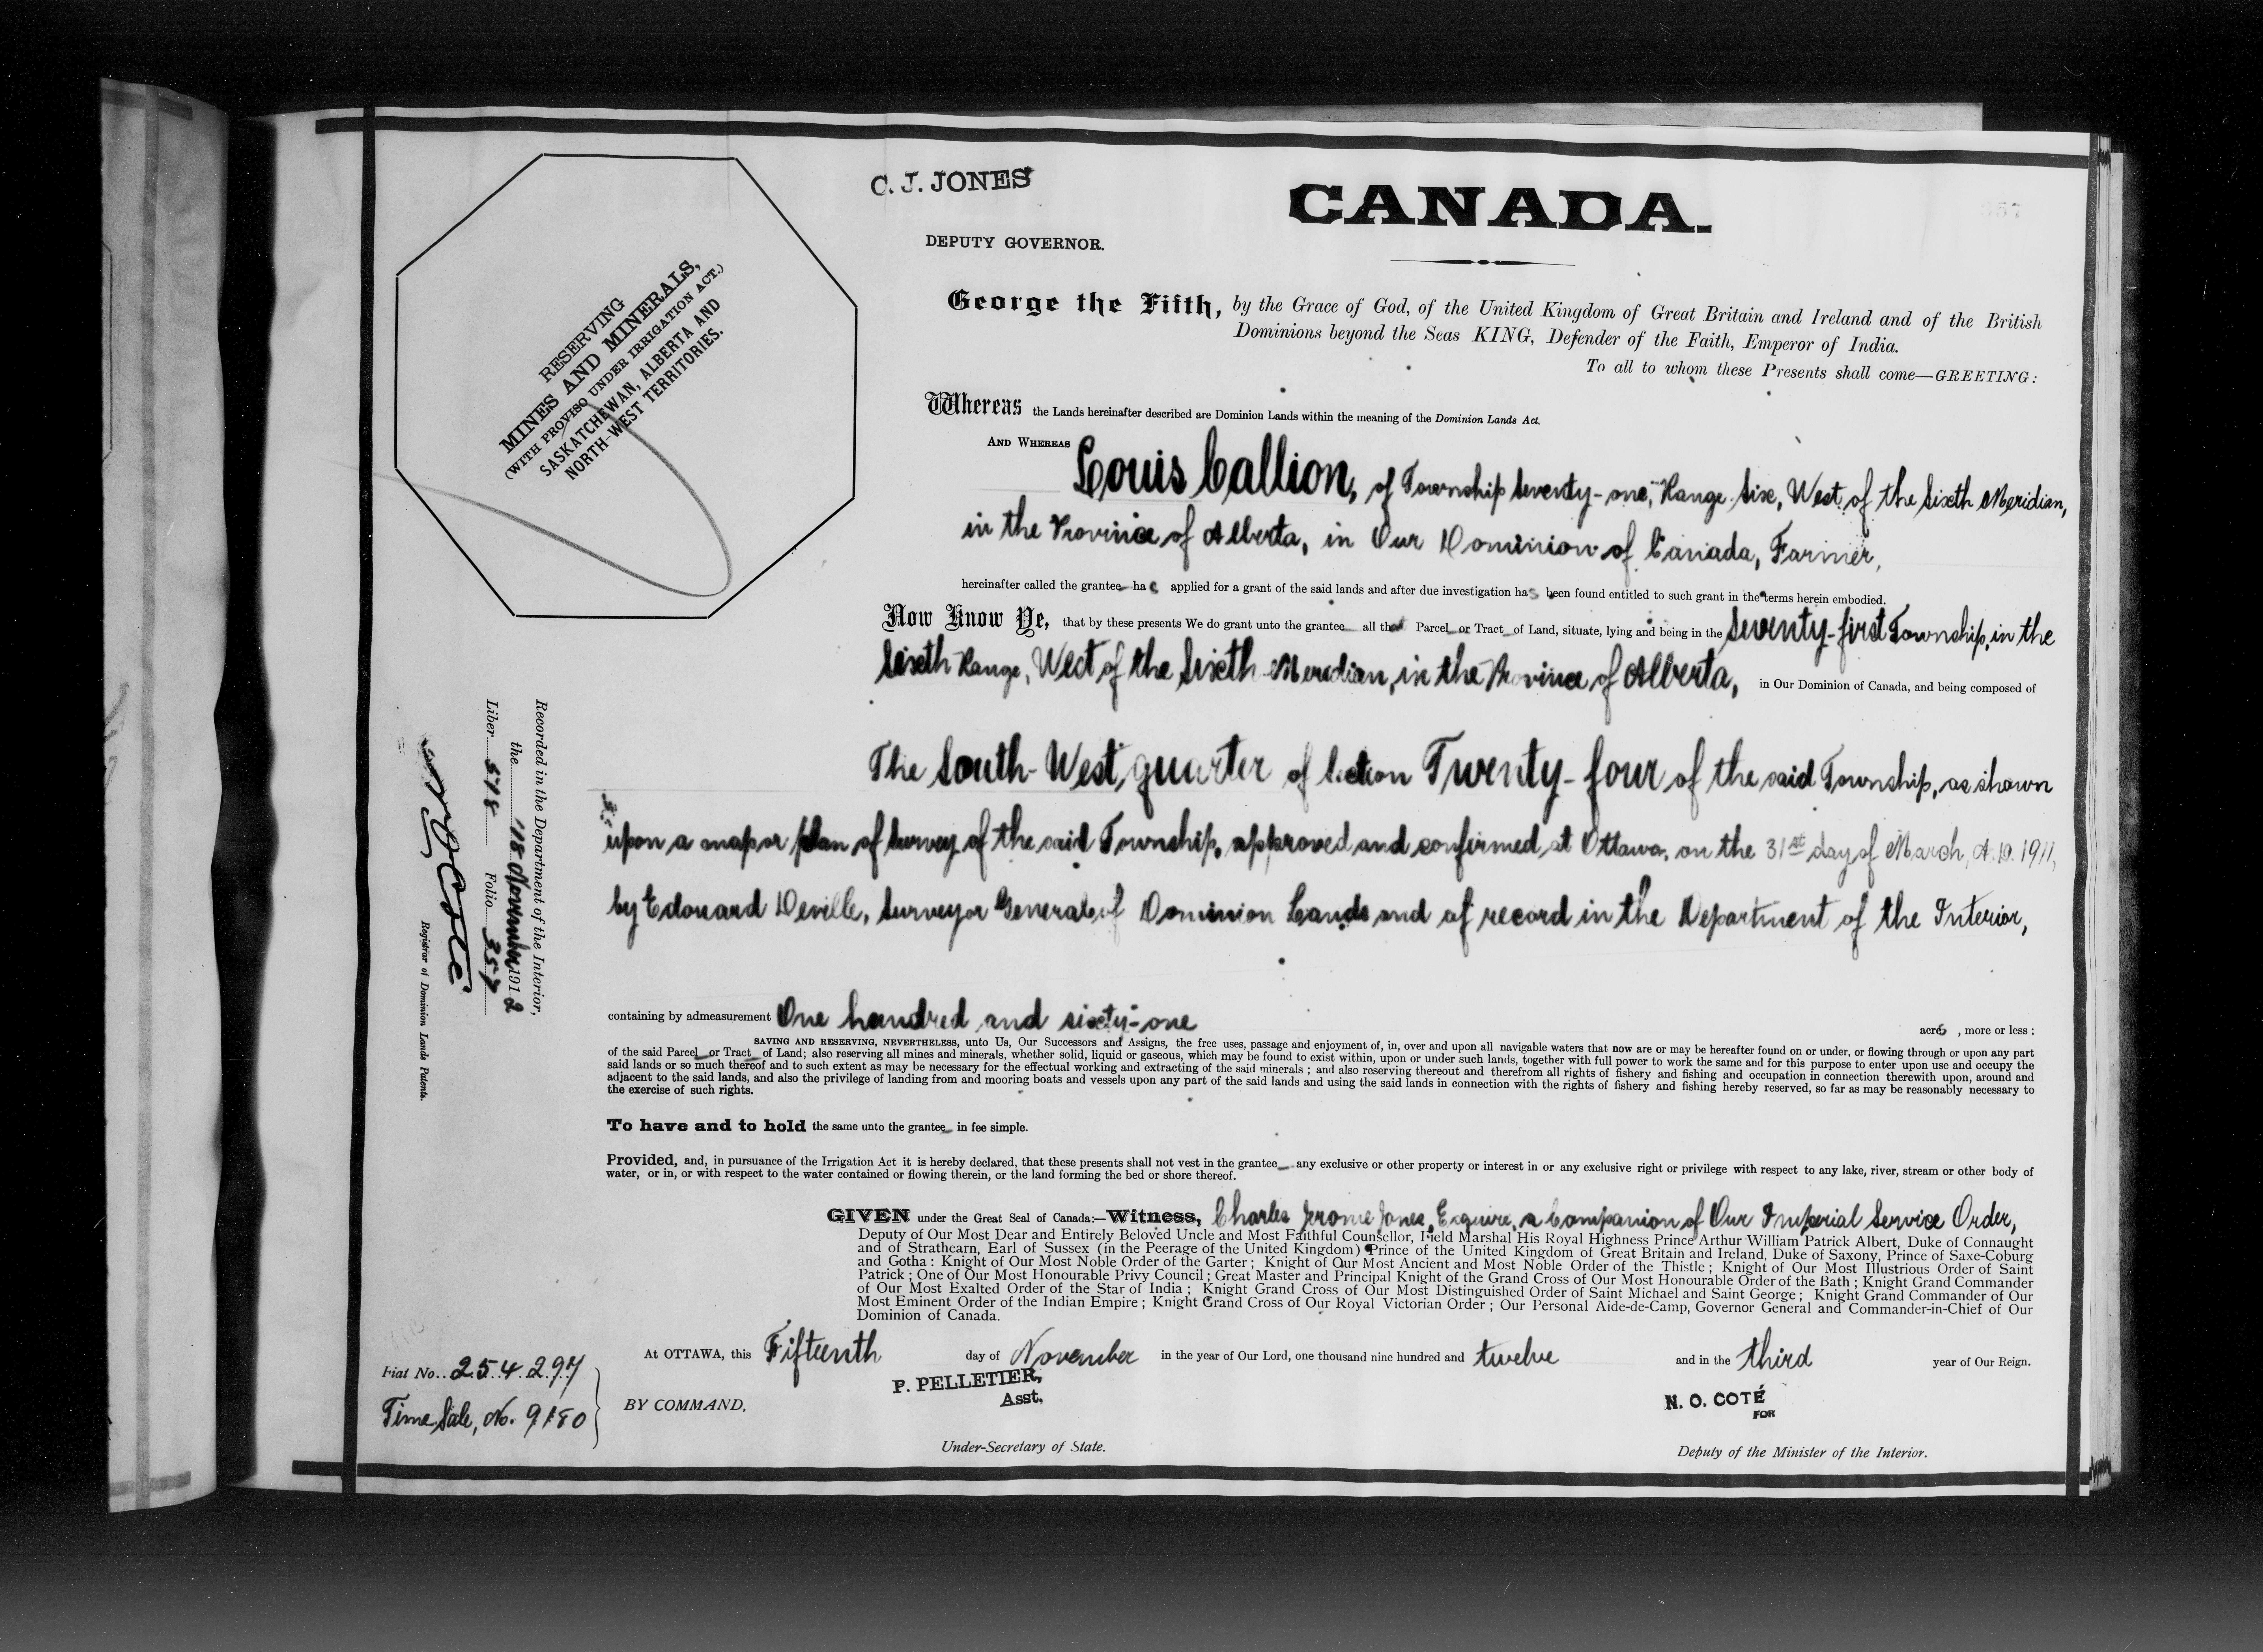 C. J. JONES
DEPUTY GOVERNOR.
CANADA.
357
RESERVING
MINES AND MINERALS,
(WITH PROVISO UNDER IRRIGATION ACT.)
SASKATCHEWAN, ALBERTA AND
NORTH-WEST TERRITORIES.
George the Fifth, by the Grace of God, of the United Kingdom of Great Britain and Ireland and of the British
Dominions beyond the Seas KING, Defender of the Faith, Emperor of India.
To all to whom these Presents shall come—GREETING:
Whereas the Lands hereinafter described are Dominion Lands within the meaning of the Dominion Lands Act.
AND WHEREAS Louis Callion, of Township Seventy-one, Range Six, West of the Sixth Meridian,
in the Province of Alberta, in Our Dominion of Canada, Farmer,
hereinafter called the grantee has applied for a grant of the said lands and after due investigation has been found entitled to such grant in the terms herein embodied.
Now Know Ye, that by these presents We do grant unto the grantee all that Parcel or Tract of Land, situate, lying and being in the Seventy-first Township, in the
Sixth Range, West of the Sixth Meridian, in the Province of Alberta, in Our Dominion of Canada, and being composed of
The South-West quarter of Section Twenty-four of the said Township, as shown
upon a map or plan of Survey of the said Township, approved and confirmed at Ottawa, on the 31st day of March, A.D. 1911,
by Edouard Deville, Surveyor General of Dominion Lands and of record in the Department of the Interior,
containing by admeasurement One hundred and sixty-one acres, more or less;
SAVING AND RESERVING, NEVERTHELESS, unto Us, Our Successors and Assigns, the free uses, passage and enjoyment of, in, over and upon all navigable waters that now are or may be hereafter found on or under, or flowing through or upon any part
of the said Parcel or Tract of Land; also reserving all mines and minerals, whether solid, liquid or gaseous, which may be found to exist within, upon or under such lands, together with full power to work the same and for this purpose to enter upon use and occupy the
said lands or so much thereof and to such extent as may be necessary for the effectual working and extracting of the said minerals; and also reserving thereout and therefrom all rights of fishery and fishing and occupation in connection therewith upon, around and
adjacent to the said lands, and also the privilege of landing from and mooring boats and vessels upon any part of the said lands and using the said lands in connection with the rights of fishery and fishing hereby reserved, so far as may be reasonably necessary to
the exercise of such rights.
To have and to hold the same unto the grantee in fee simple.
Provided, and, in pursuance of the Irrigation Act it is hereby declared, that these presents shall not vest in the grantee any exclusive or other property or interest in or any exclusive right or privilege with respect to any lake, river, stream or other body of
water, or in, or with respect to the water contained or flowing therein, or the land forming the bed or shore thereof.
GIVEN under the Great Seal of Canada:—Witness, Charles Jerome Jones, Esquire, a Companion of Our Imperial Service Order,
Deputy of Our Most Dear and Entirely Beloved Uncle and Most Faithful Counsellor, Field Marshal His Royal Highness Prince Arthur William Patrick Albert, Duke of Connaught
and of Strathearn, Earl of Sussex (in the Peerage of the United Kingdom) Prince of the United Kingdom of Great Britain and Ireland, Duke of Saxony, Prince of Saxe-Coburg
and Gotha: Knight of Our Most Noble Order of the Garter; Knight of Our Most Ancient and Most Noble Order of the Thistle; Knight of Our Most Illustrious Order of Saint
Patrick; One of Our Most Honourable Privy Council; Great Master and Principal Knight of the Grand Cross of Our Most Honourable Order of the Bath; Knight Grand Commander
of Our Most Exalted Order of the Star of India; Knight Grand Cross of Our Most Distinguished Order of Saint Michael and Saint George; Knight Grand Commander of Our
Most Eminent Order of the Indian Empire; Knight Grand Cross of Our Royal Victorian Order; Our Personal Aide-de-Camp, Governor General and Commander-in-Chief of Our
Dominion of Canada.
At OTTAWA, this Fifteenth day of November in the year of Our Lord, one thousand nine hundred and twelve and in the third year of Our Reign.
BY COMMAND,
P. PELLETIER,
Asst.
Under-Secretary of State.
N. O. COTÉ
FOR
Deputy of the Minister of the Interior.
Recorded in the Department of the Interior,
the 18 November 1912
Liber 518 Folio 357
N O Coté
Registrar of Dominion Lands Patents.
Fiat No. 254297
Time Sale, No. 9180